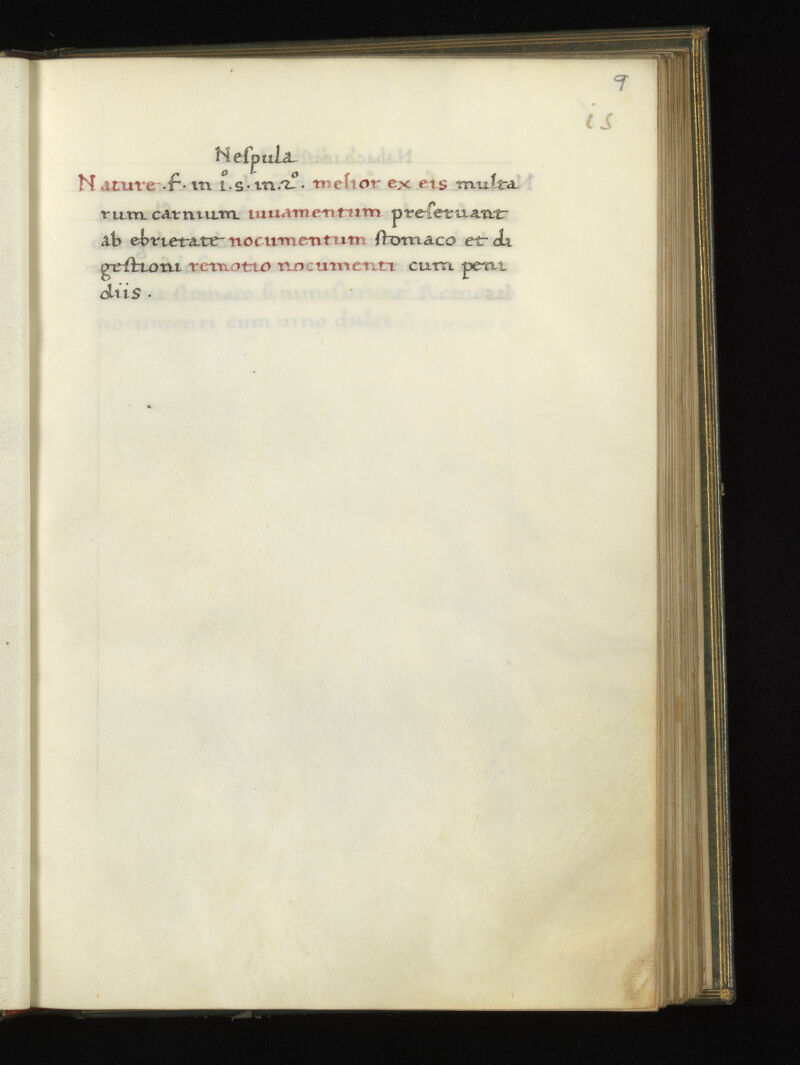 9
15
Neſpula
Nature .f. in i.º s. in .2.º melior ex eis multa
rum carnium iuuamentum preſeruant
ab ebrietate nocumentum ſtomaco et di
geſtioni remotio nocumenti cum peni
diis .
nocumenti cum uino dulci